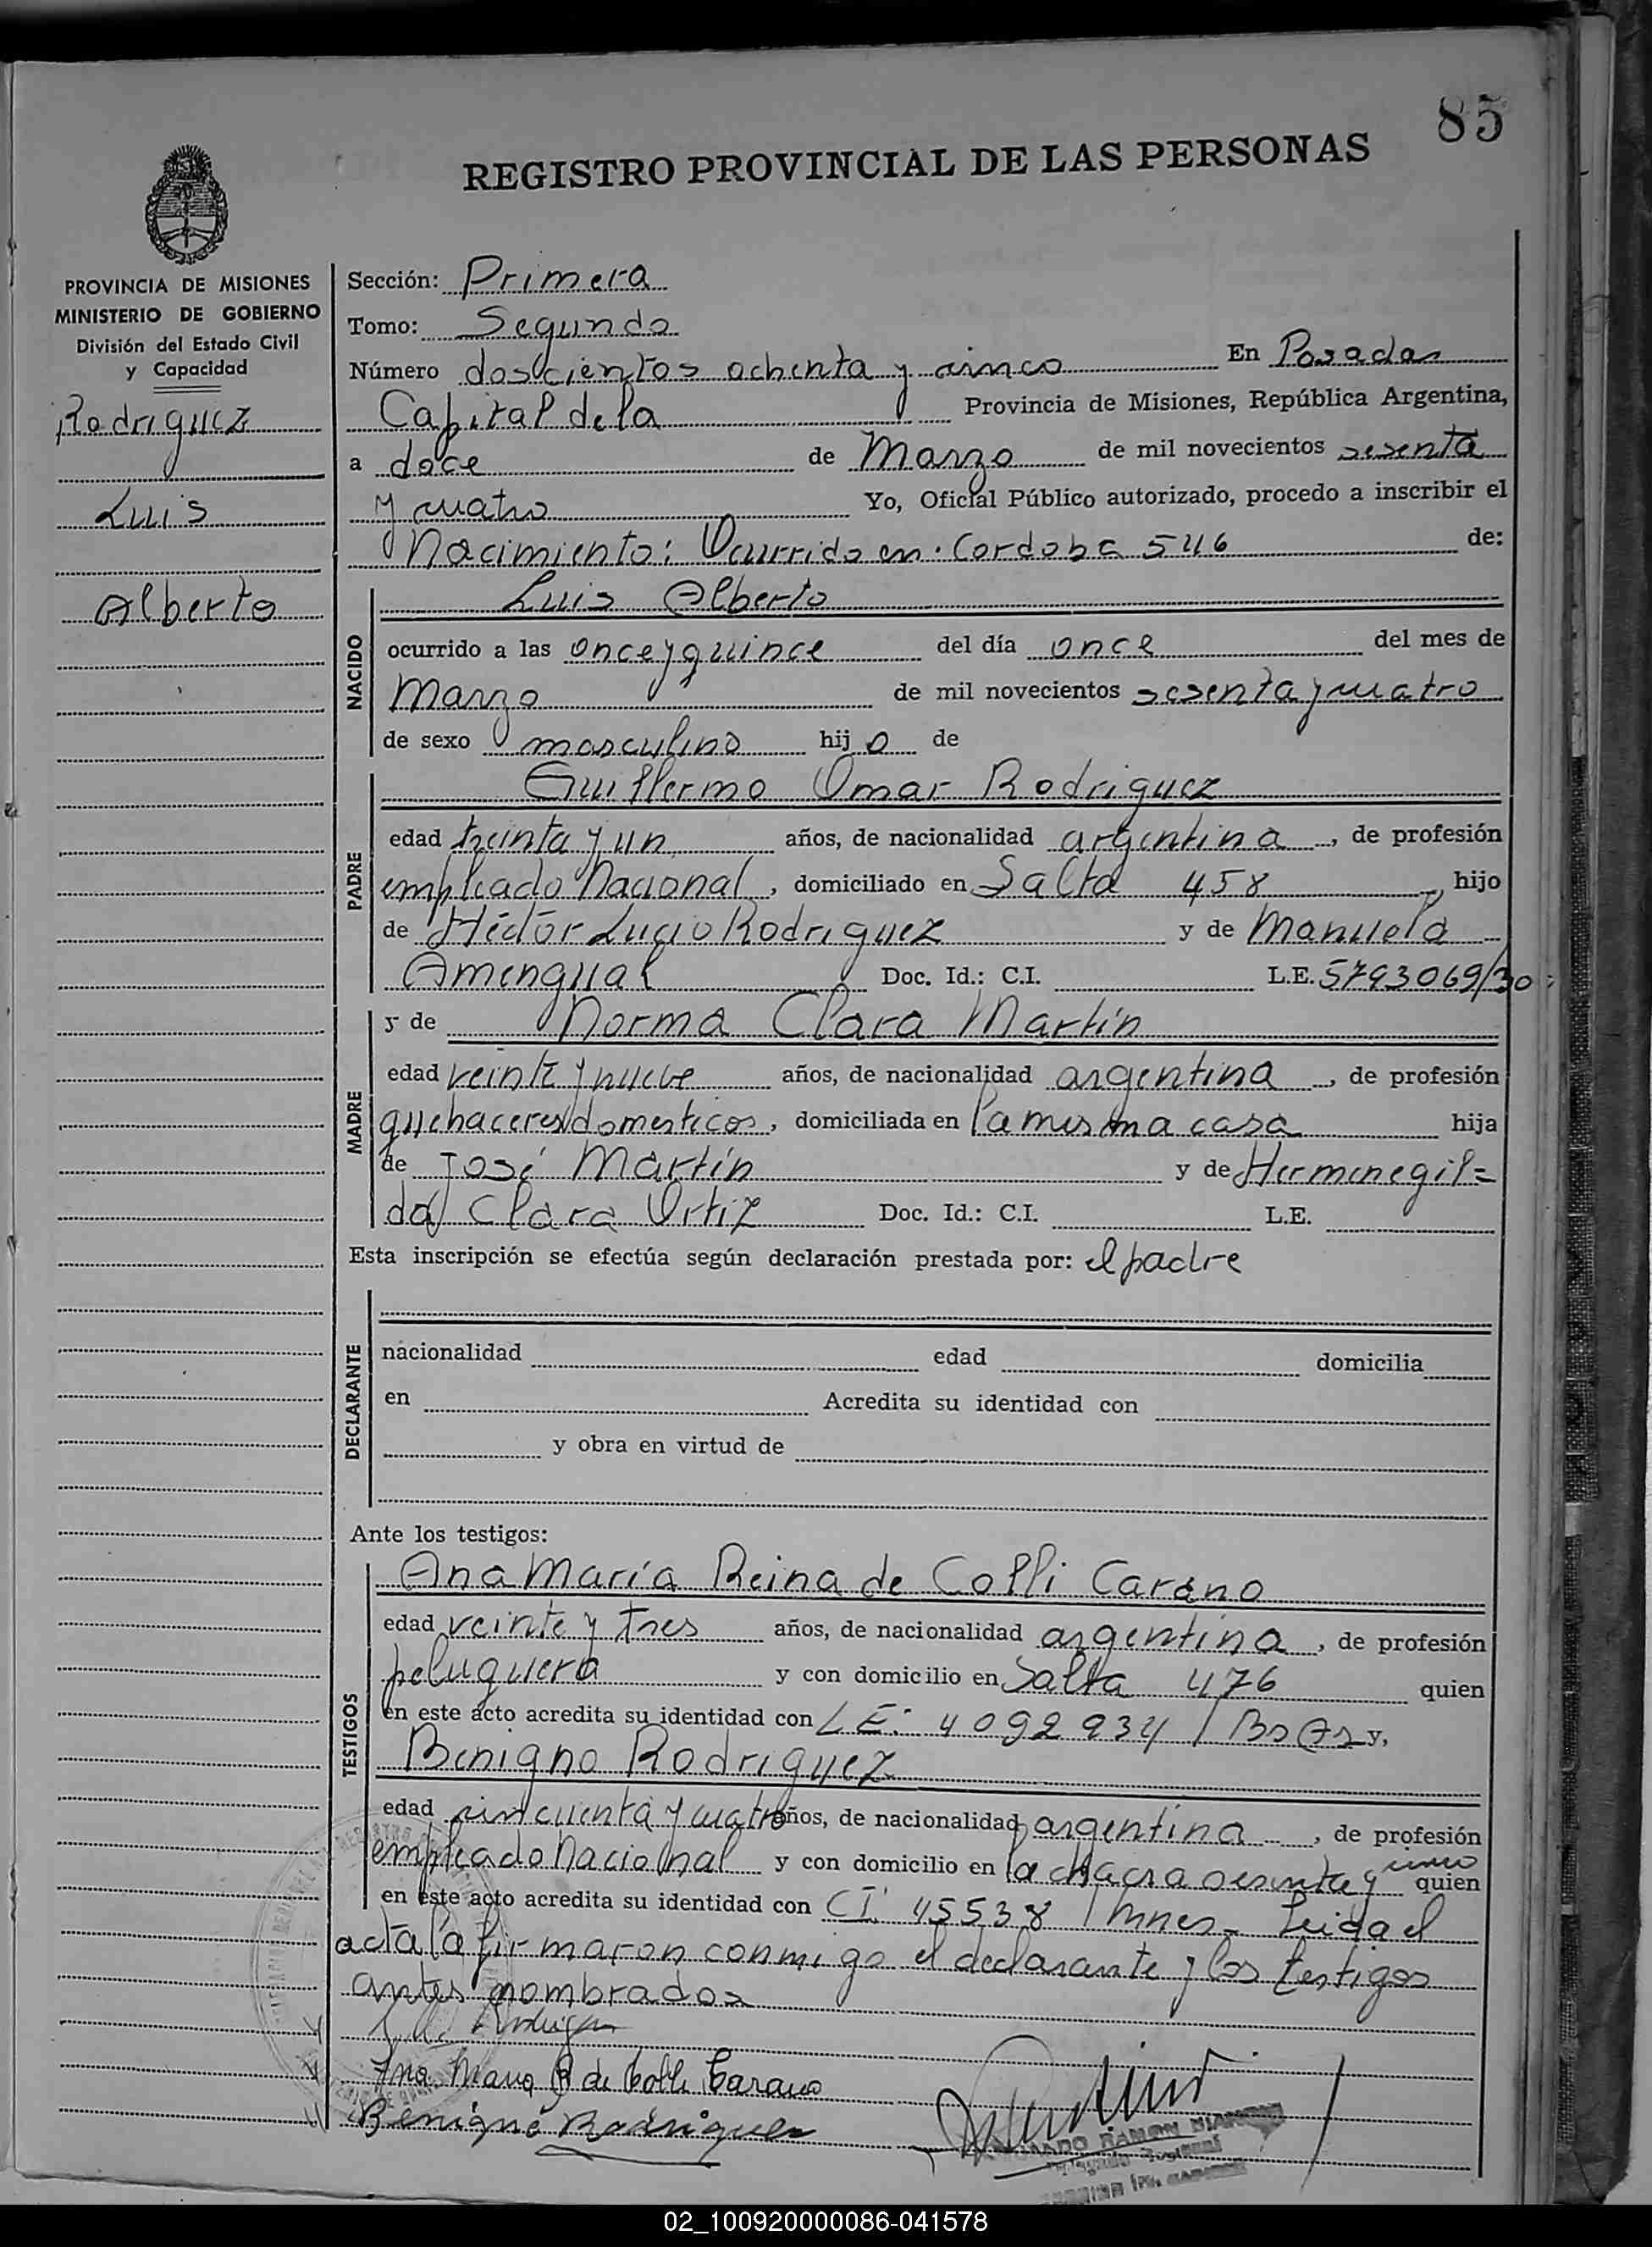 85
REGISTRO PROVINCIAL DE LAS PERSONAS
PROVINCIA DE MISIONES
MINISTERIO DE GOBIERNO
División del Estado Civil
y Capacidad
Rodriguez
Luis
Alberto
Sección: Primera
Tomo: Segundo
Número doscientos ochenta y cinco En Posadas
Capital de la Provincia de Misiones, República Argentina,
a doce de Marzo de mil novecientos sesenta
y cuatro Yo, Oficial Público autorizado, procedo a inscribir el
Nacimiento: Ocurrido en: Cordoba 546 de:
NACIDO
Luis Alberto
ocurrido a las once y quince del día once del mes de
Marzo de mil novecientos sesenta y cuatro
de sexo masculino hijo de
PADRE
Guillermo Omar Rodriguez
edad treinta y un años, de nacionalidad argentina, de profesión
empleado Nacional, domiciliado en Salta 458, hijo
de Héctor Lucio Rodriguez y de Manuela
Amengual Doc. Id.: C.I. L.E. 5793069/30
MADRE
y de Norma Clara Martín
edad veinte y nueve años, de nacionalidad argentina, de profesión
quehaceres domesticos, domiciliada en la misma casa hija
de José Martín y de Hermenegil=
da Clara Ortiz Doc. Id.: C.I. L.E.
Esta inscripción se efectúa según declaración prestada por: el padre
DECLARANTE
nacionalidad edad domicilia
en Acredita su identidad con
y obra en virtud de
Ante los testigos:
TESTIGOS
Ana María Reina de Colli Carano
edad veinte y tres años, de nacionalidad argentina, de profesión
peluquera y con domicilio en Salta 476 quien
en este acto acredita su identidad con LE: 4092934 / Bs As y,
Benigno Rodriguez
edad cincuenta y cuatro años, de nacionalidad argentina, de profesión
empleado Nacional y con domicilio en la chacra sesenta y cinco quien
en este acto acredita su identidad con CI. 45538 / Mnes. Leida el
acta la firmaron conmigo el declarante y los testigos
antes nombrados
Ana Maria R de Colli Carano
Benigno Rodriguez
RAMON
02_100920000086-041578